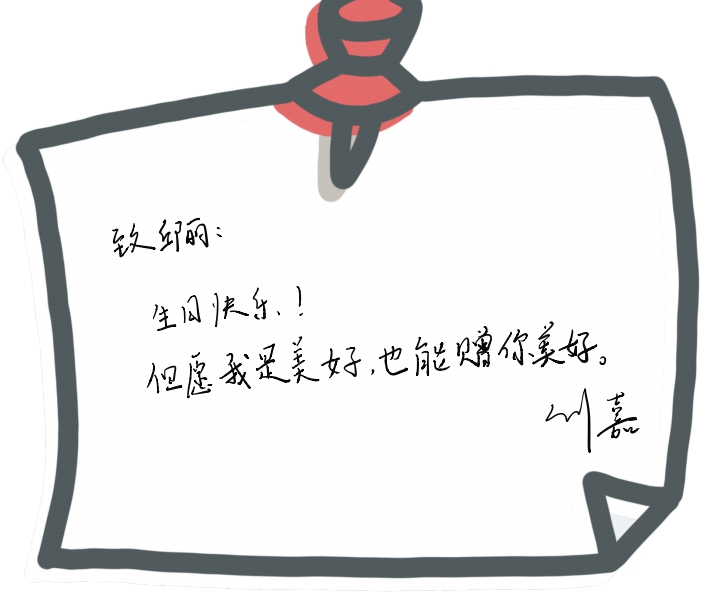 致邱丽:
生日快乐!
但愿我是美好,也能赠你美好。
嘉